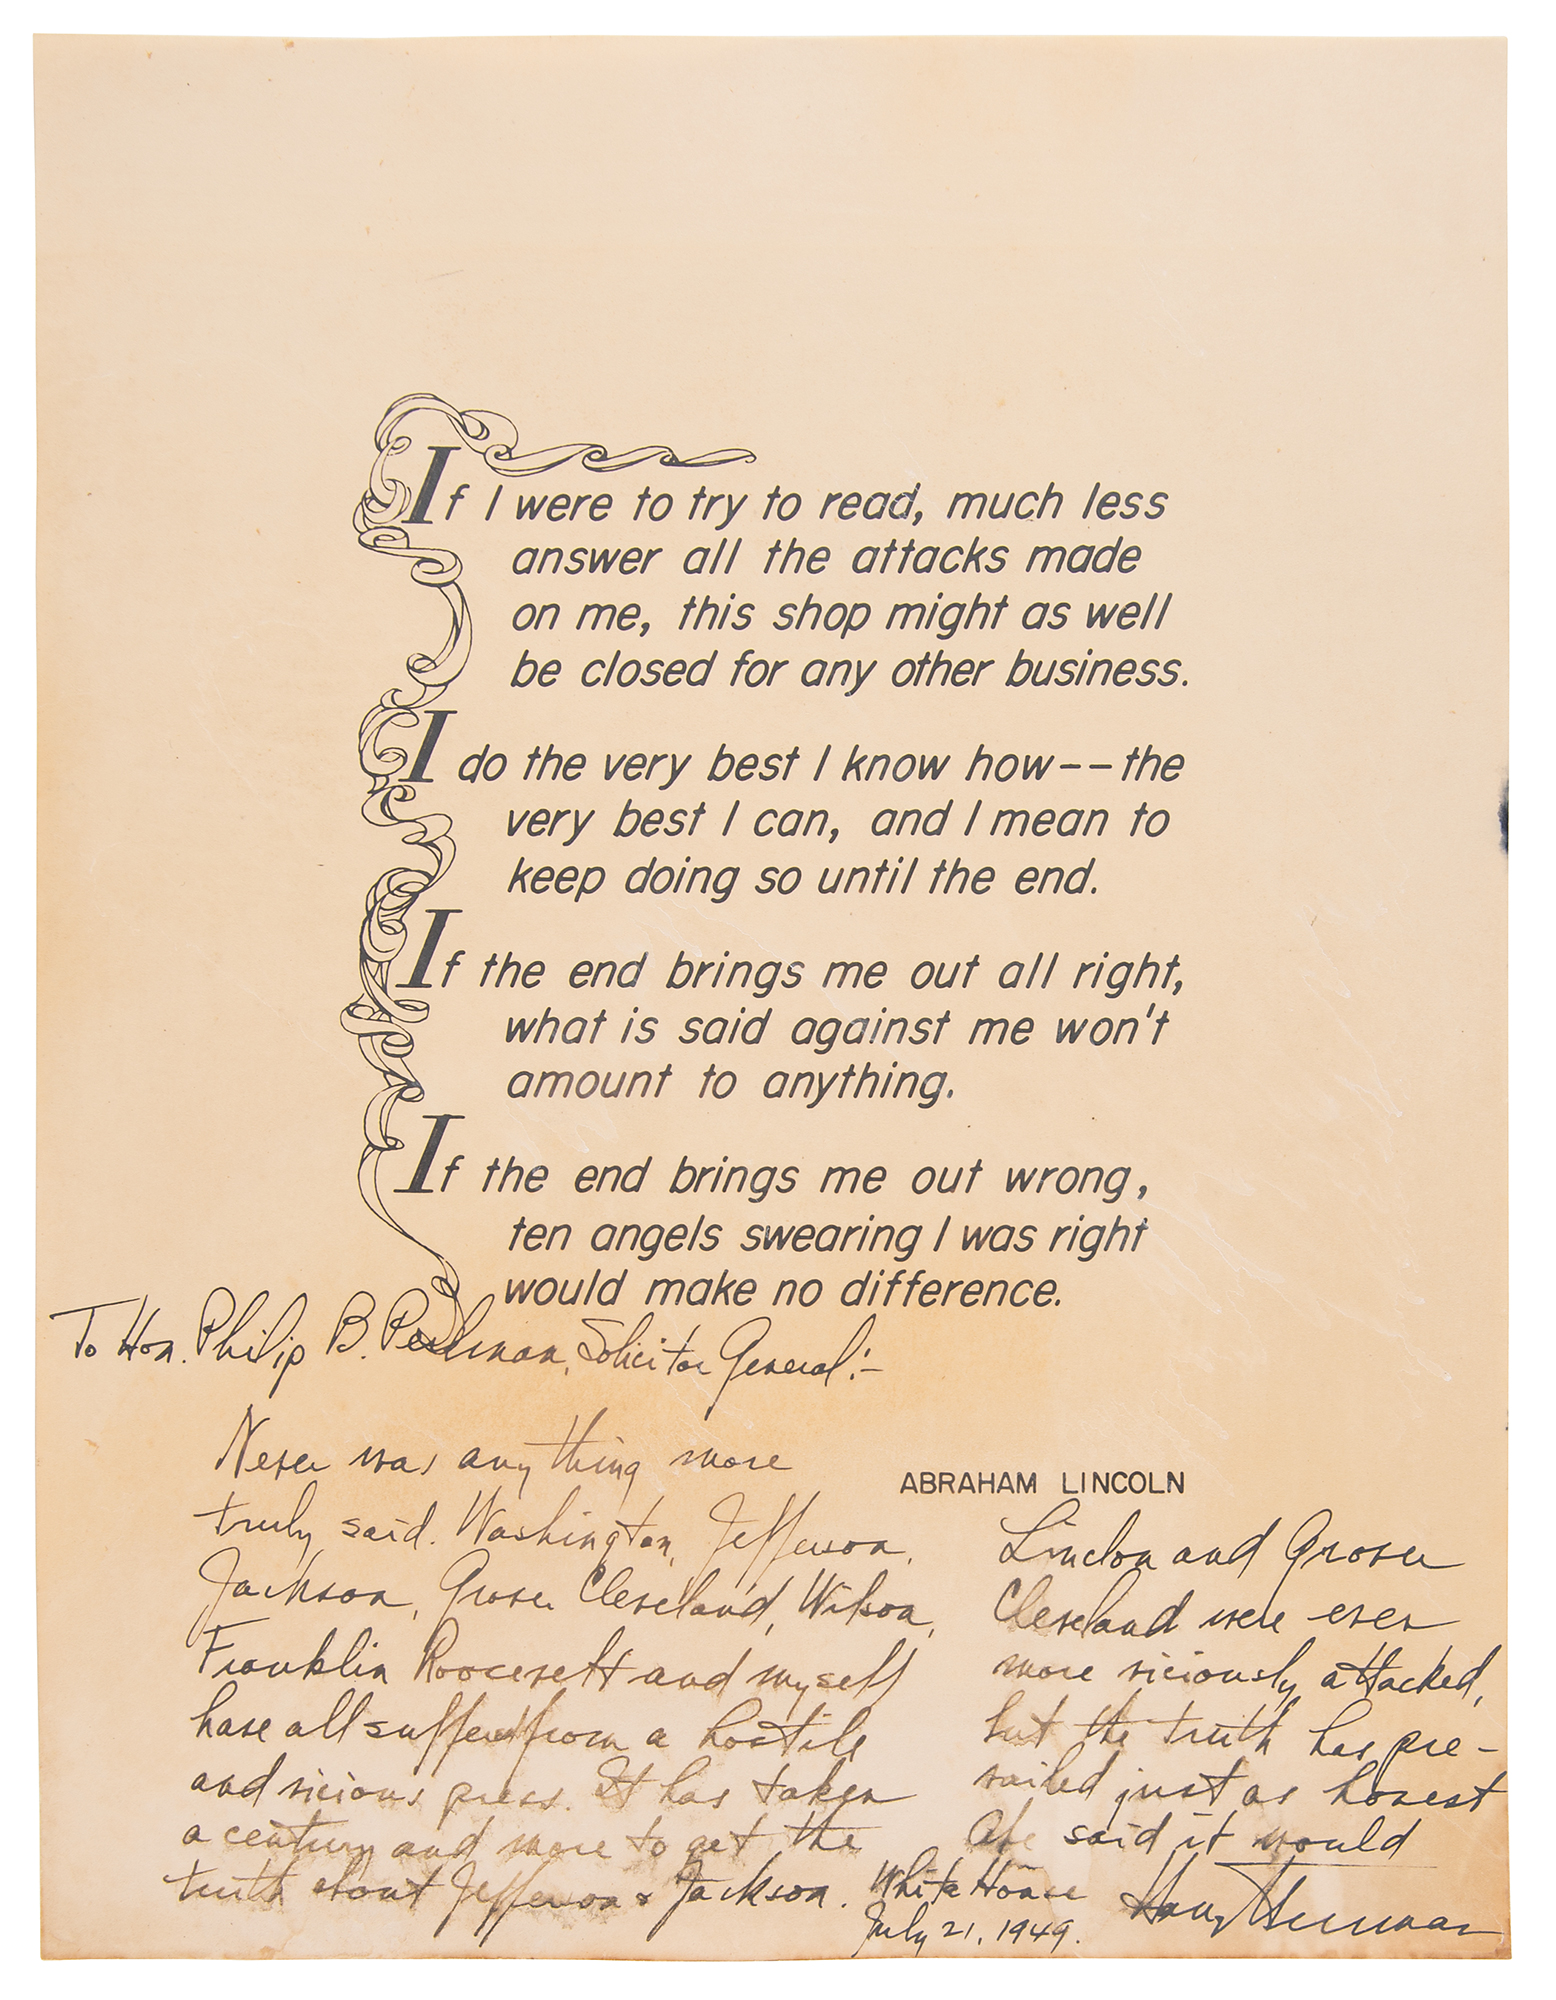 If I were to try to read, much less
answer all the attacks made
on me, this shop might as well
be closed for any other business.
I do the very best I know how--the
very best I can, and I mean to
keep doing so until the end.
If the end brings me out all right,
what is said against me won't
amount to anything.
If the end brings me out wrong,
ten angels swearing I was right
would make no difference.
To Hon. Philip B. Perlman, Solicitor General:-
ABRAHAM LINCOLN
Never was anything more
truly said. Washington, Jefferson,
Jackson, Grover Cleveland, Wilson,
Franklin Roosevelt and myself
have all suffered from a hostile
and vicious press. It has taken
a century and more to get the
truth about Jefferson & Jackson.
Lincoln and Grover
Cleveland were even
more viciously attacked,
but the truth has pre-
vailed just as honest
Abe said it would
White House
July 21, 1949.
Harry Truman